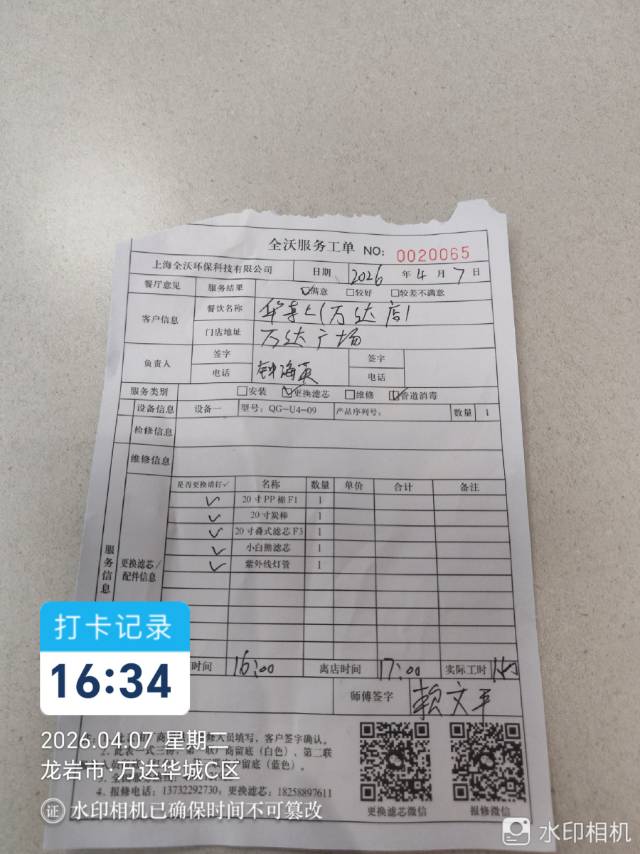 全沃服务工单 NO: 0020065
上海全沃环保科技有限公司 日期 2026 年 4 月 7 日
餐厅意见 服务结果 ☑满意 □较好 □较差不满意
客户信息 餐饮名称 华莱士(万达店)
门店地址 万达广场
负责人 签字 钟海英 签字
电话 电话
服务类别 □安装 ☑更换滤芯 □维修 ☑管道消毒
设备信息 设备一 型号: QG-U4-09 产品序列号: 数量 1
检修信息
维修信息
服务信息
更换滤芯/配件信息
是否更换请打✓ 名称 数量 单价 合计 备注
✓ 20寸PP棉F1 1
✓ 20寸炭棒 1
✓ 20寸叠式滤芯F3 1
✓ 小白熊滤芯 1
✓ 紫外线灯管 1
时间 16:00 离店时间 17:00 实际工时 1h
师傅签字 赖文平
人员填写，客户签字确认。
2. 此表一式三 商留底(白色)、第二联
留底(蓝色)。
4. 报修电话: 13732292730, 更换滤芯: 18258897611
更换滤芯微信 报修微信
打卡记录
16:34
2026.04.07 星期二
龙岩市·万达华城C区
证 水印相机已确保时间不可篡改
水印相机